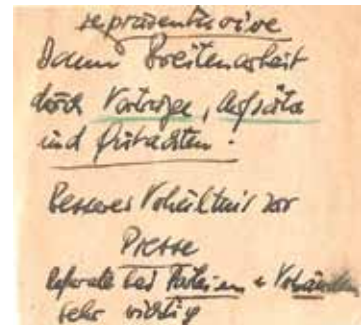 repräsentative
Dann Breitenarbeit
durch Vorträge, Aufsätze
und Gutachten.
Besseres Verhältnis zur
Presse
Referate bei Parteien + Verbänden
sehr wichtig